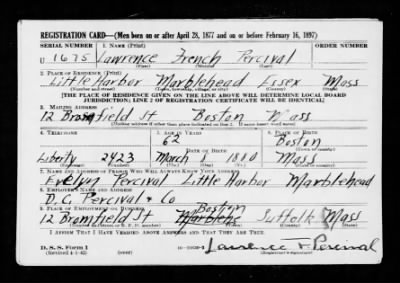 REGISTRATION CARD—(Men born on or after April 28, 1877 and on or before February 16, 1897)
SERIAL NUMBER 1. NAME (Print) ORDER NUMBER
U 1675 Lawrence French Percival
(First) (Middle) (Last)
2. PLACE OF RESIDENCE (Print)
Little Harbor Marblehead Essex Mass
(Number and street) (Town, township, village, or city) (County) (State)
[THE PLACE OF RESIDENCE GIVEN ON THE LINE ABOVE WILL DETERMINE LOCAL BOARD
JURISDICTION; LINE 2 OF REGISTRATION CERTIFICATE WILL BE IDENTICAL]
3. MAILING ADDRESS
12 Bromfield St Boston Mass
[Mailing address if other than place indicated on line 2. If same insert word same]
4. TELEPHONE 5. AGE IN YEARS 6. PLACE OF BIRTH
62 Boston
DATE OF BIRTH (Town or county)
Liberty 2423 March 1880 Mass
(Exchange) (Number) (Mo.) (Day) (Yr.) (State or country)
7. NAME AND ADDRESS OF PERSON WHO WILL ALWAYS KNOW YOUR ADDRESS
Evelyn Percival Little Harbor Marblehead
8. EMPLOYER'S NAME AND ADDRESS
D. C. Percival & Co
9. PLACE OF EMPLOYMENT OR BUSINESS Boston
12 Bromfield St Suffolk Mass
(Number and street or R. F. D. number) (Town) (County) (State)
I AFFIRM THAT I HAVE VERIFIED ABOVE ANSWERS AND THAT THEY ARE TRUE.
D. S. S. Form 1
(Revised 4-1-42) (over) Lawrence F Percival